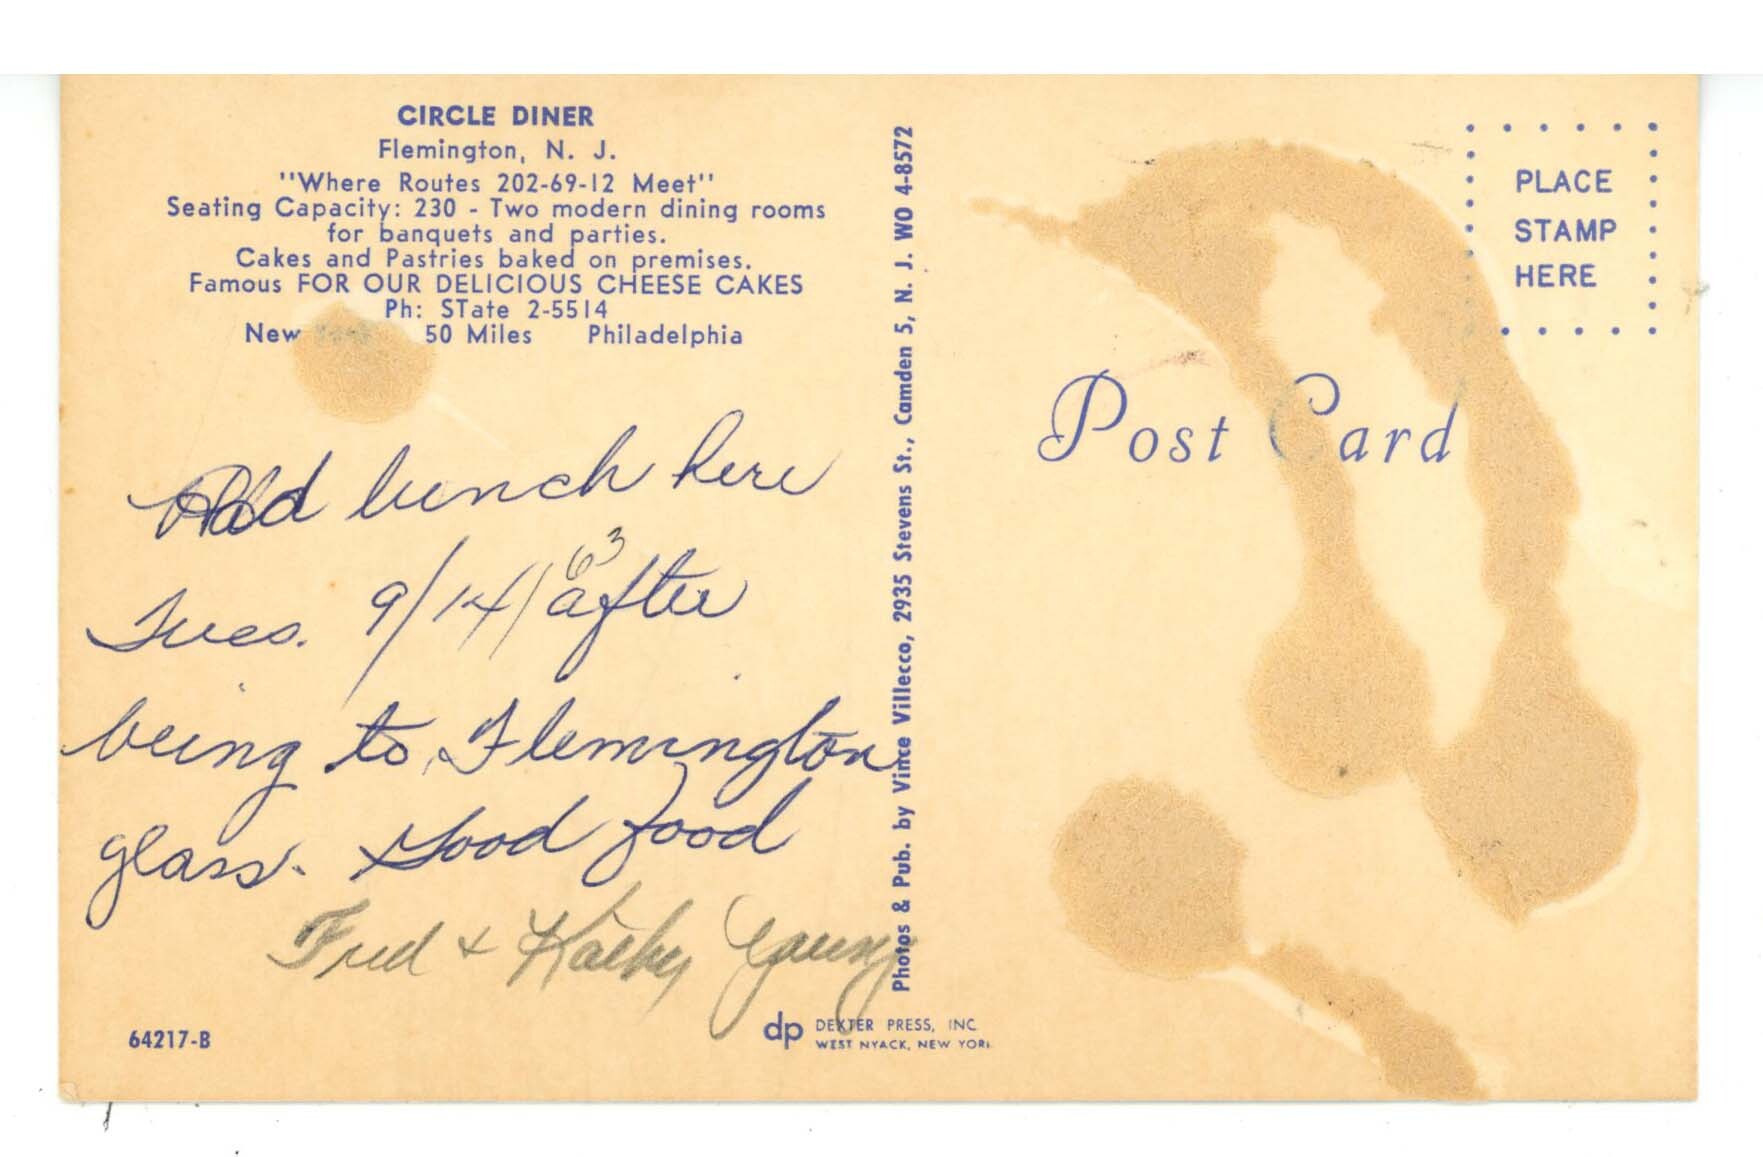 CIRCLE DINER
Flemington, N. J.
"Where Routes 202-69-12 Meet"
Seating Capacity: 230 - Two modern dining rooms
for banquets and parties.
Cakes and Pastries baked on premises.
Famous FOR OUR DELICIOUS CHEESE CAKES
Ph: STate 2-5514
New York 50 Miles Philadelphia
Had lunch here
Tues. 9/14/63 after
being to Flemington
glass. Good food
Fred + Kathy Young
64217-B
Photos & Pub. by Vince Villecco, 2935 Stevens St., Camden 5, N. J. WO 4-8572
dp DEXTER PRESS, INC.
WEST NYACK, NEW YORK
PLACE
STAMP
HERE
Post Card